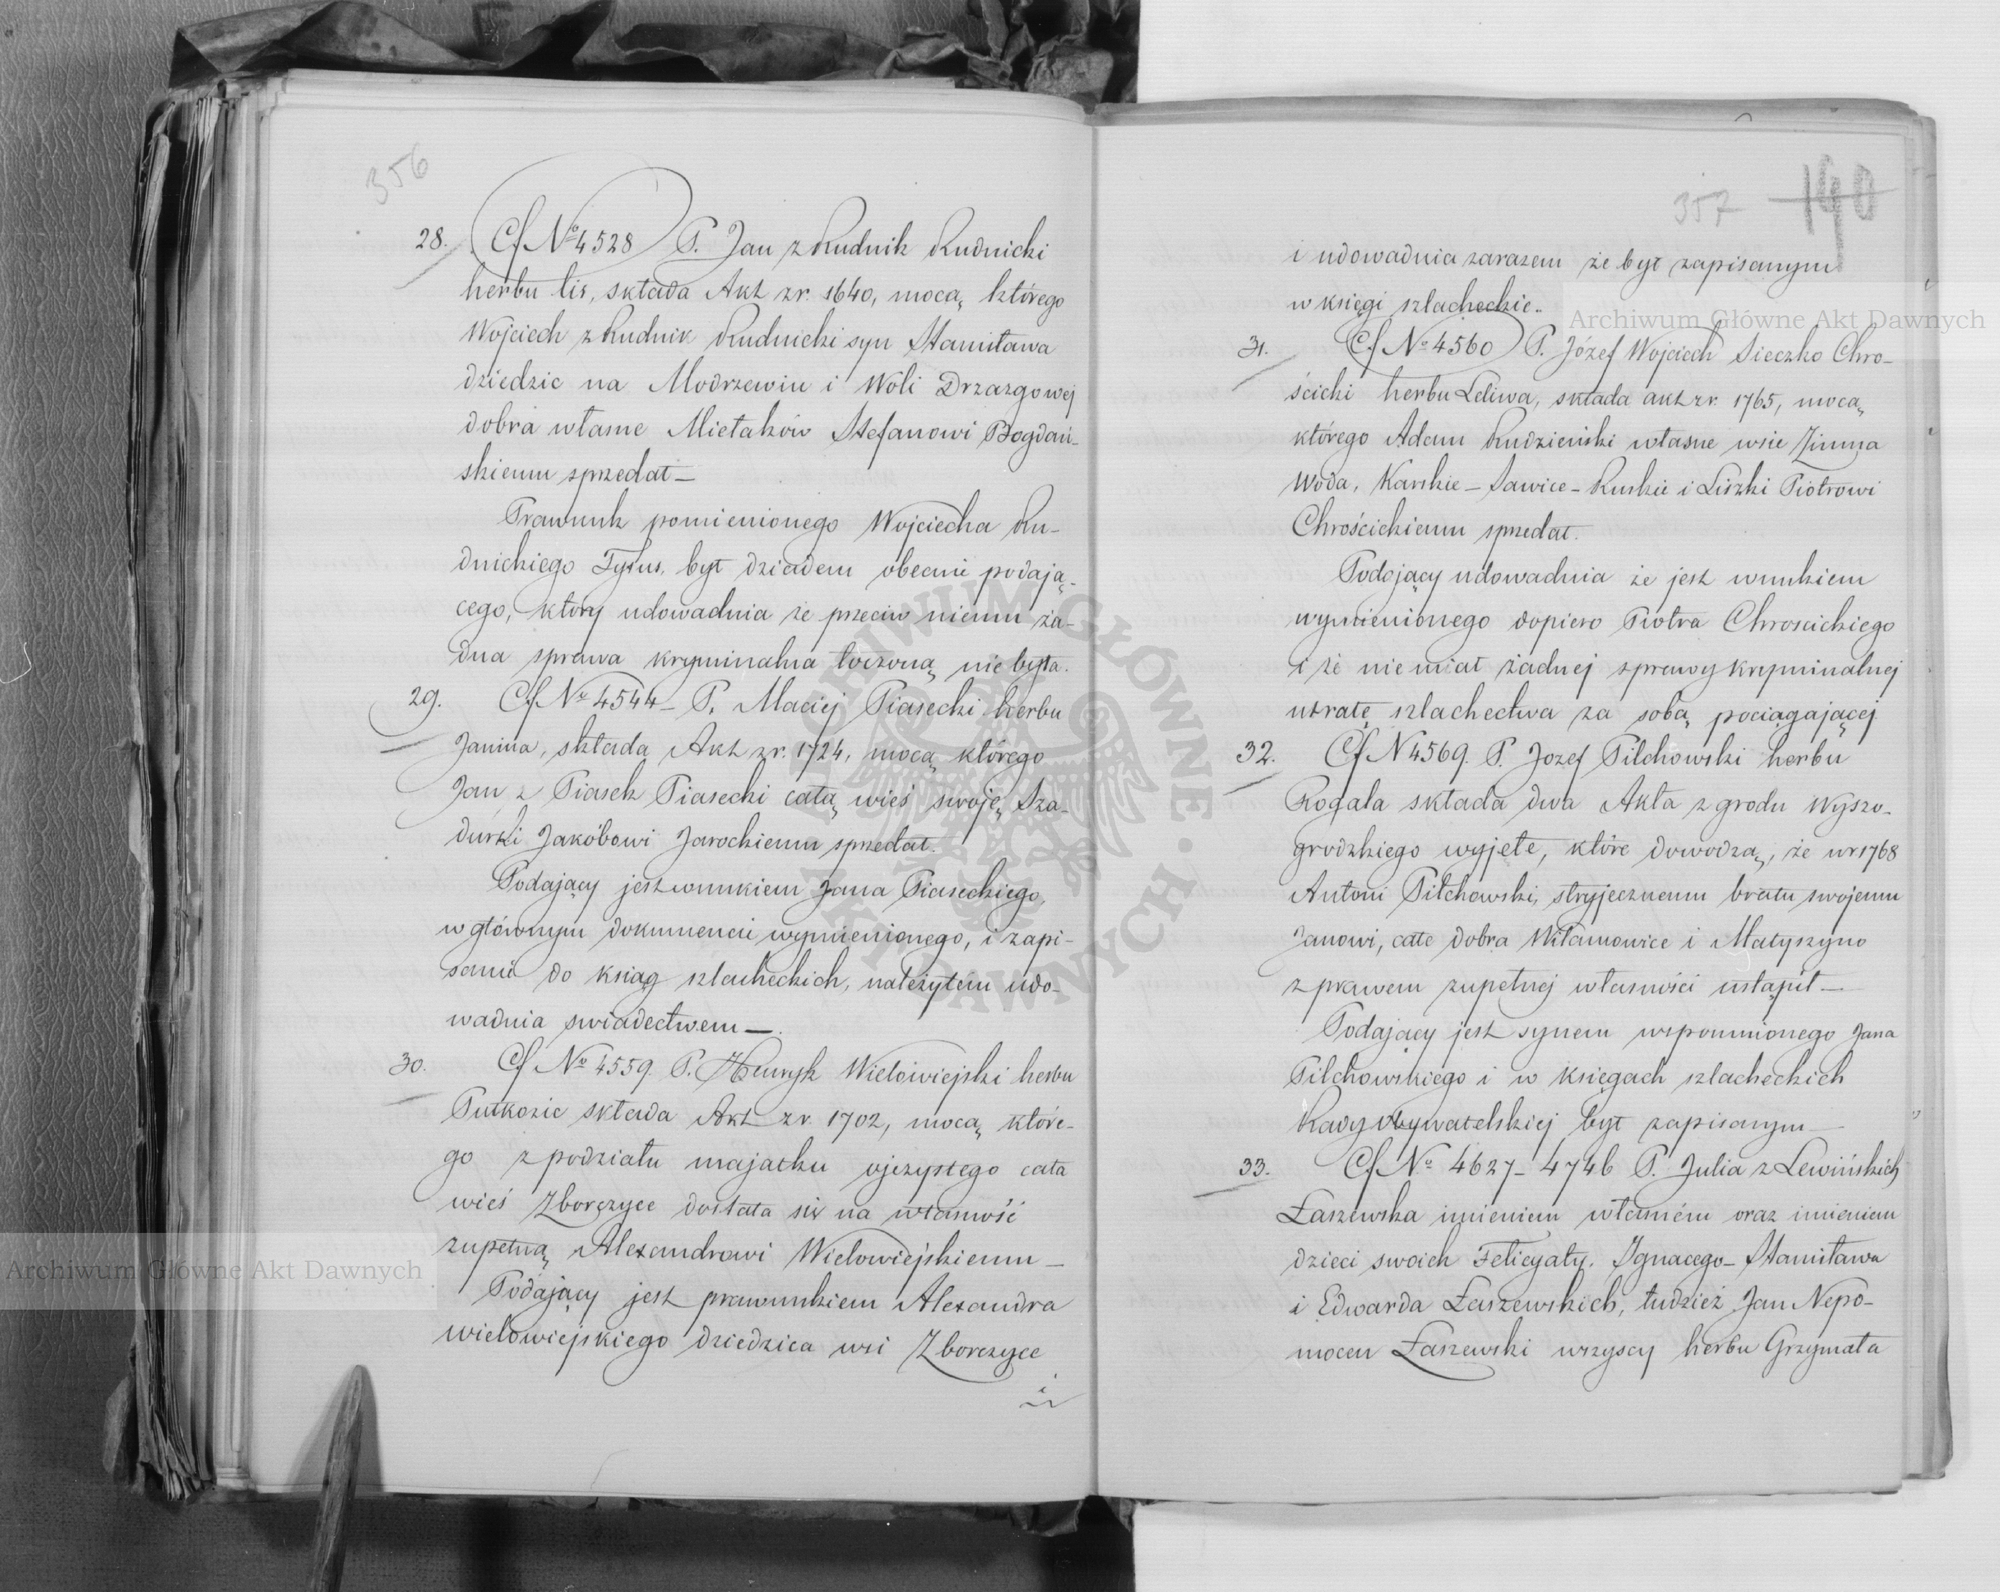 356
28. Cf No 4528 P. Jan z Rudnik Rudnicki
herbu lis, składa Akt z r. 1640, mocą którego
Wojciech z Rudnik Rudnicki syn Stanisława
dziedzic na Modrzewiu i Woli Drzazgowej
dobra własne Mietaków Stefanowi Bogdań-
skiemu sprzedał —
Prawnuk pomienionego Wojciecha Ru-
dnickiego Tytus, był dziadem obecnie podają-
cego, który udowadnia że przeciw niemu ża-
dna sprawa kryminalna toczoną nie była.
29. Cf No 4544 — P. Maciej Piasecki herbu
Janina, składa Akt z r. 1724, mocą którego
Jan z Piasek Piasecki całą wieś swoję Sza-
durki Jakóbowi Jarockiemu sprzedał.
Podający jest wnukiem Jana Piaseckiego,
w głównym dokumencie wymienionego, i zapi-
sanie do ksiąg szlacheckich, należytém udo-
wadnia swiadectwem —.
30. Cf No 4559. P. Henryk Wielowiejski herbu
Pułkozic składa Akt z r. 1702, mocą które-
go z podziału majatku ojczystego cała
wieś Zborczyce dostała się na własność
zupełną Alexandrowi Wielowiejskiemu —
Podający jest prawnukiem Alexandra
wielowiejskiego dziedzica wsi Zborczyce
i
357 190
i udowadnia zarazem że był zapisanym
w księgi szlacheckie.
31. Cf No 4560 P. Józef Wojciech Sieczko Chro-
ścicki herbu Leliwa, składa akt z r. 1765, mocą
którego Adam Rudzieński własne wsie Zimna
Woda, Karskie — Sawice — Ruskie i Liszki Piotrowi
Chrościckiemu sprzedał.
Podający udowadnia że jest wnukiem
wymienionego dopiero Piotra Chroscickiego
i że nie miał żadnej sprawy kryminalnej
utratę szlachectwa za sobą pociągającej
32. Cf N 4569. P. Jozef Pilchowski herbu
Rogala składa dwa Akta z grodu Wyszo-
grodzkiego wyjęte, które dowodzą, że w r 1768
Antoni Pilchowski, stryjecznemu bratu swojemu
Janowi, całe dobra Wilamowice i Matyszyno
z prawem zupełnej własności ustąpił —
Podający jest synem wspomnionego Jana
Pilchowskiego i w księgach szlacheckich
Rady Obywatelskiej był zapisanym —
33. Cf No 4627 — 4746 P. Julia z Lewińskich
Łaszewska imieniem własném oraz imieniem
dzieci swoich Felicyaty, Ignacego — Stanisława
i Edwarda Łaszewskich, tudzież Jan Nepo-
mocen Łaszewski wszyscy herbu Grzymała
Archiwum Główne Akt Dawnych
Archiwum Główne Akt Dawnych
ARCHIWUM GŁÓWNE AKT DAWNYCH